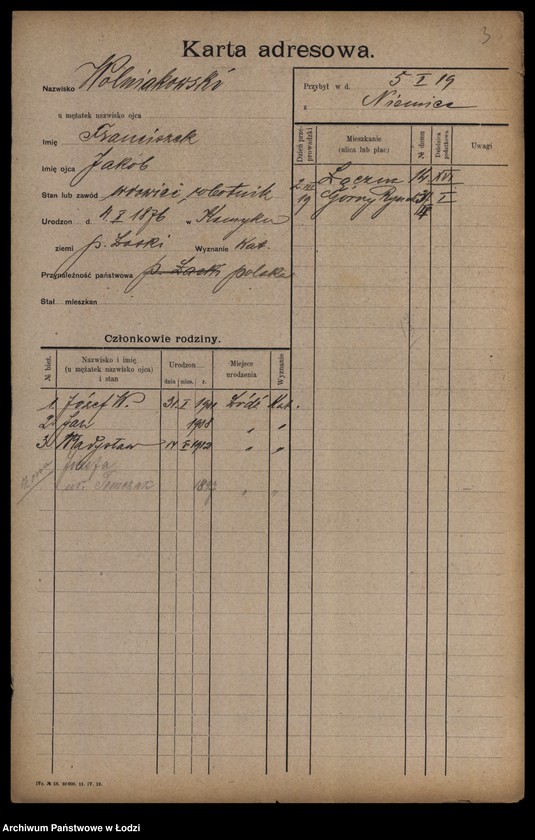 3
Karta adresowa.
Nazwisko Wolniakowski
u mężatek nazwisko ojca
Imię Franciszek
Imię ojca Jakób
Stan lub zawód wdowiec robotnik
Urodzon d. 4. I 1876 w
ziemi p. Łaski Wyznanie Kat.
Przynależność państwowa p. Łaski polska
Stał. mieszkan
Przybył w d. 5 I 19
z Niemiec
Dzień przeprowadzki
Mieszkanie (ulica lub plac)
№ domu
Dzielnica podatkowa.
Uwagi
Łączna 14 XVI
2. III 19 Górny Rynek I
Członkowie rodziny.
№ bież.
Nazwisko i imię (u mężatek nazwisko ojca) i stan
Urodzon
dnia mies. r.
Miejsce urodzenia
Wyznanie
1. Józef W. 31 I 1901 Łódź Kat.
2. Jan 1908 " "
3. Władysław 14 1912 " "
żona Józefa
ur. Tomczak 1897 " "
Archiwum Państwowe w Łodzi